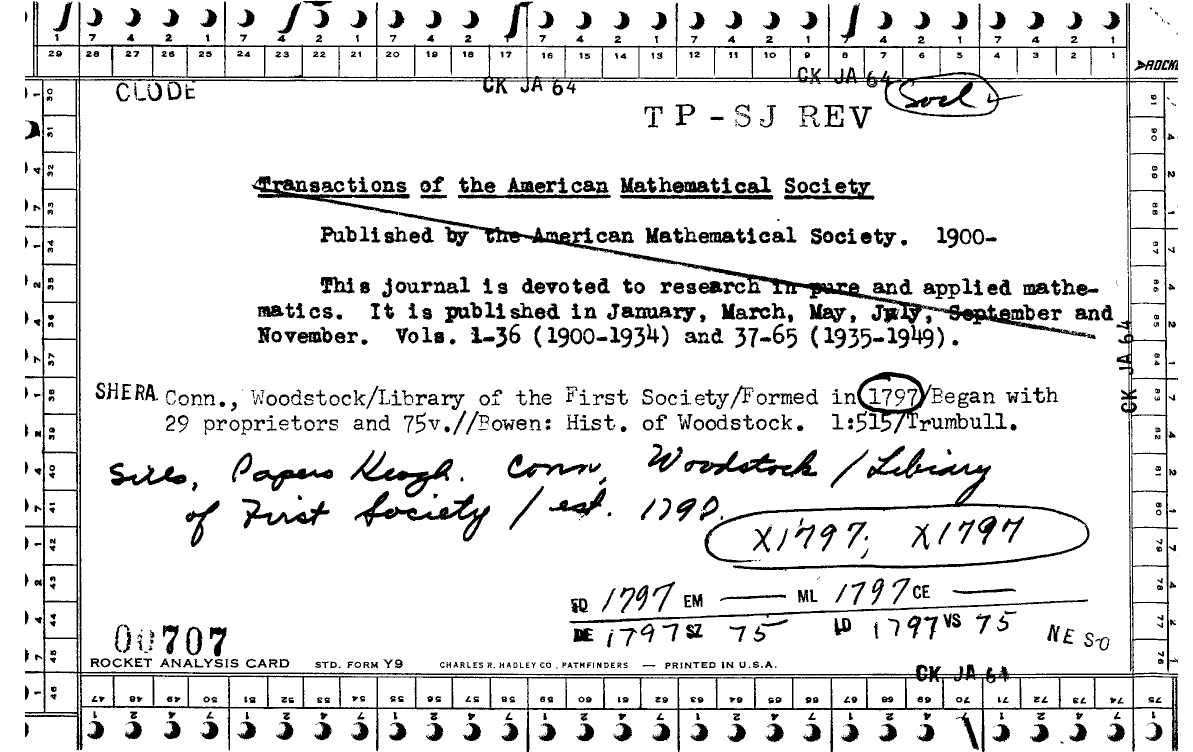 1 7 4 2 1 7 4 2 1 7 4 2 1 7 4 2 1 7 4 2 1 7 4 2 1 7 4 2 1
29 28 27 26 25 24 23 22 21 20 19 18 17 16 15 14 13 12 11 10 9 8 7 6 5 4 3 2 1
CLODE CK JA 64 CK JA 64
TP-SJ REV
Transactions of the American Mathematical Society
Published by the American Mathematical Society. 1900-
This journal is devoted to research in pure and applied mathe-
matics. It is published in January, March, May, July, September and
November. Vols. 1-36 (1900-1934) and 37-65 (1935-1949).
CK JA 64
SHERA Conn., Woodstock/Library of the First Society/Formed in 1797/Began with
29 proprietors and 75v.//Bowen: Hist. of Woodstock. 1:515/Trumbull.
Sills, Papers Keogh. Conn, Woodstock / Library
of First Society / est. 1798.
X1797; X1797
ED 1797 EM — ML 1797 CE —
DE 1797 SZ 75 LD 1797 VS 75 NE SO
00707
ROCKET ANALYSIS CARD STD. FORM Y9 CHARLES R. HADLEY CO., PATHFINDERS — PRINTED IN U.S.A.
CK JA 64
47 48 49 50 51 52 53 54 55 56 57 58 59 60 61 62 63 64 65 66 67 68 69 70 71 72 73 74 75